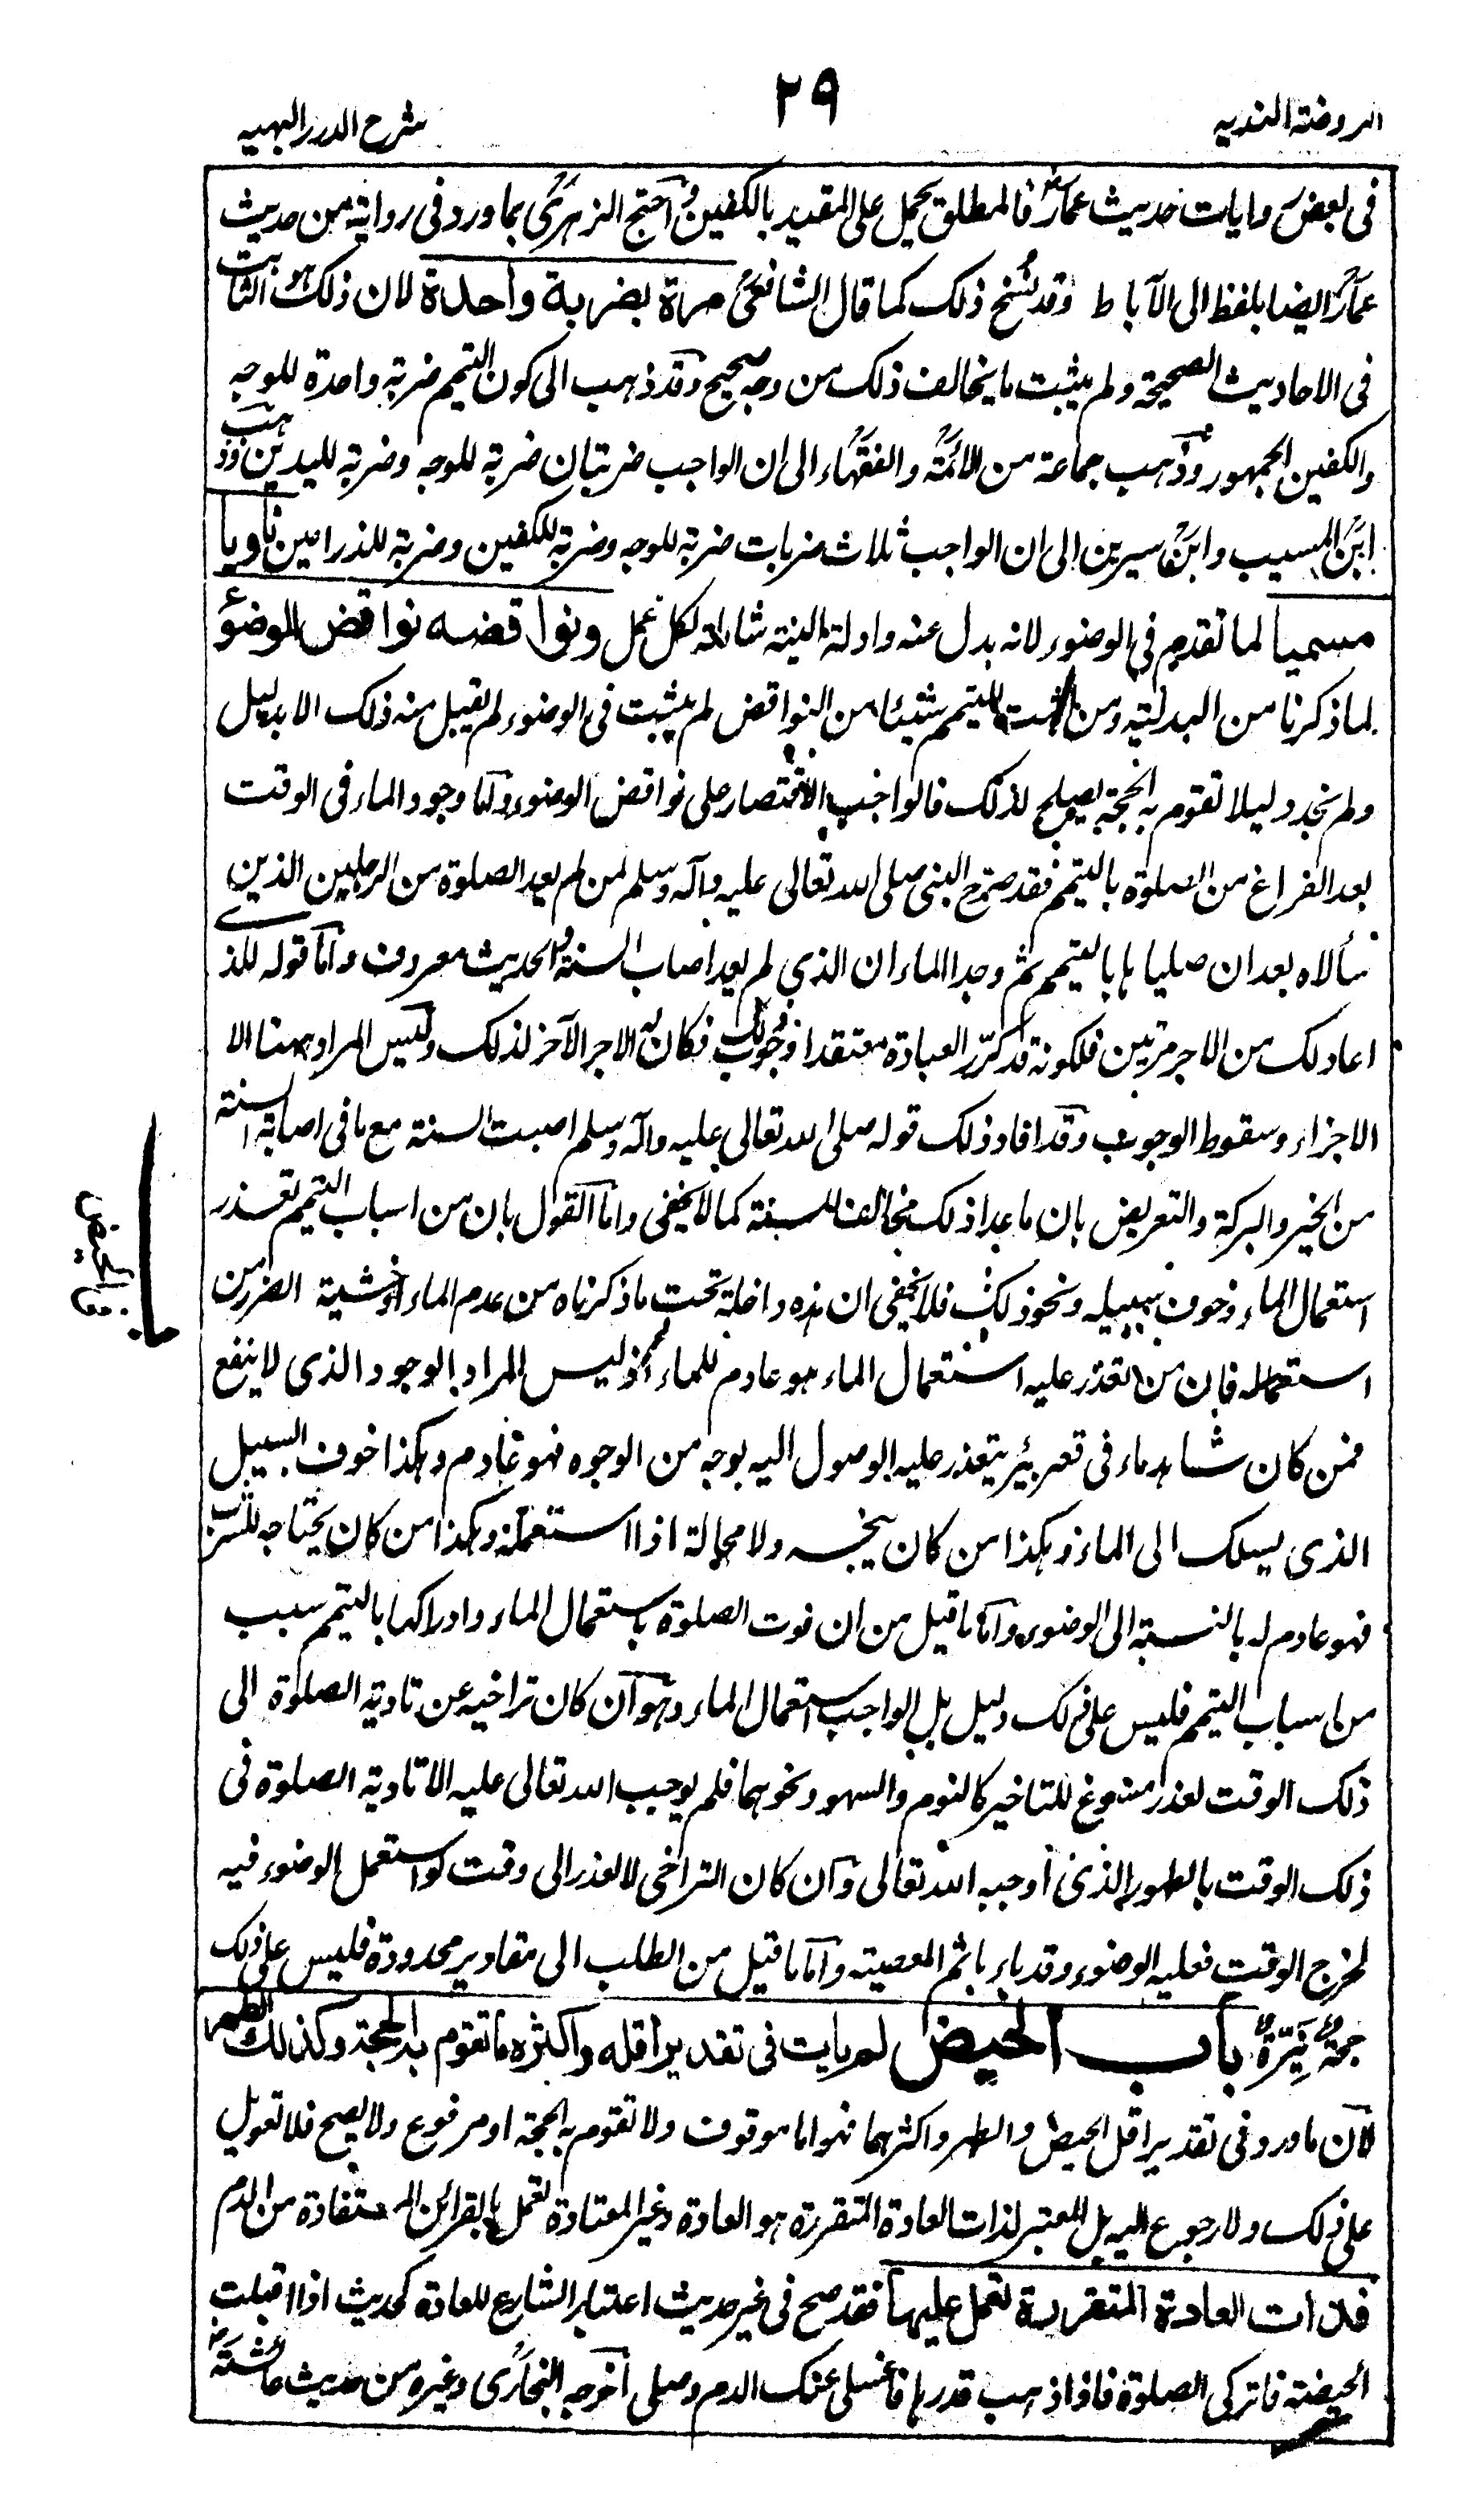 الروضة الندية
٢٩
شرح الدرر البهية
فى بعض روايات حديث عمار فالمطلق يحمل على المقيد بالكفين واحتج الزهرى بما ورد فى رواية من حديث
عمار ايضا بلفظ الى الآباط وقد نسخ ذلك كما قال الشافعى مرة بضربة واحدة لان ذلك هو الثابت
فى الاحاديث الصحيحة ولم يثبت ما يخالف ذلك من وجه صحيح وقد ذهب الى كون التيمم ضربة واحدة للوجه
والكفين الجمهور وذهب جماعة من الائمة والفقهاء الى ان الواجب ضربتان ضربة للوجه وضربة لليدين وذهب
ابن المسيب وابن سيرين الى ان الواجب ثلاث ضربات ضربة للوجه وضربة للكفين وضربة للذراعين ناويا
مسميا لما تقدم فى الوضوء لانه بدل عنه وادلة النية شاملة لكل عمل ونواقضه نواقض الوضوء
لما ذكرنا من البدلية ومن اثبت للتيمم شيئا من النواقض لم يثبت فى الوضوء لم يقبل منه ذلك الا بدليل
ولم نجد دليلا تقوم به الحجة يصلح لذلك فالواجب الاقتصار على نواقض الوضوء واما وجود الماء فى الوقت
بعد الفراغ من الصلوة بالتيمم فقد صرح النبى صلى الله تعالى عليه وآله وسلم لمن لم يعد الصلوة من الرجلين الذين
سألاه بعد ان صلياها بالتيمم ثم وجدا الماء ان الذي لم يعد اصاب السنة والحديث معروف واما قوله للذى
اعاد لك من الاجر مرتين فلكونه قد كرر العبادة معتقدا وجوب ذلك فكان له الاجر الآخر لذلك وليس المراد ههنا الا
الاجزاء وسقوط الوجوب وقد افاد ذلك قوله صلى الله تعالى عليه وآله وسلم اصبت السنة مع ما فى اصابة السنة
من الخير والبركة والتعريض بان ما عدا ذلك مخالف للسنة كما لا يخفى واما القول بان من اسباب التيمم تعذر
استعمال الماء وخوف سبيله ونحو ذلك فلا يخفى ان هذه داخلة تحت ما ذكرناه من عدم الماء او خشية الضرر من
استعماله فان من تعذر عليه استعمال الماء هو عادم للماء اذ ليس المراد الوجود الذى لا ينفع
فمن كان شاهد ماء فى قعر بئر يتعذر عليه الوصول اليه بوجه من الوجوه فهو عادم وهكذا خوف السبيل
الذى يسلك الى الماء وهكذا من كان ينجسه ولا محالة اذا استعمله وهكذا من كان يحتاجه للشرب
فهو عادم له بالنسبة الى الوضوء واما ما قيل من ان فوت الصلوة باستعمال الماء وادراكها بالتيمم سبب
من اسباب التيمم فليس على ذلك دليل بل الواجب استعمال الماء وهو ان كان تراخيه عن تادية الصلوة الى
ذلك الوقت لعذر مسوغ للتاخير كالنوم والسهو ونحوهما فلم يوجب الله تعالى عليه الا تادية الصلوة فى
ذلك الوقت بالطهور الذى اوجبه الله تعالى وان كان التراخى لا لعذر الى وقت لو استعمل الوضوء فيه
لخرج الوقت فعليه الوضوء وقد باء باثم المعصية واما ما قيل من الطلب الى مقادير محدودة فليس على ذلك
حجة نيرة باب الحيض لم يات فى تقدير اقله واكثره ما تقوم به الحجة وكذلك الطهر
لان ما ورد فى تقدير اقل الحيض والطهر واكثرهما فهو اما موقوف ولا تقوم به الحجة او مرفوع ولا يصح فلا تعويل
على ذلك ولا رجوع اليه بل المعتبر لذات العادة المتقررة هو العادة وغير المعتادة تعمل بالقرائن المستفادة من الدم
فذات العادة المتقررة تعمل عليها فقد صح فى غير حديث اعتبار الشارع للعادة كحديث اذا اقبلت
الحيضة فاتركى الصلوة فاذا ذهب قدرها فاغسلى عنك الدم وصلى اخرجه البخارى وغيره من حديث عائشة
باب الحيض